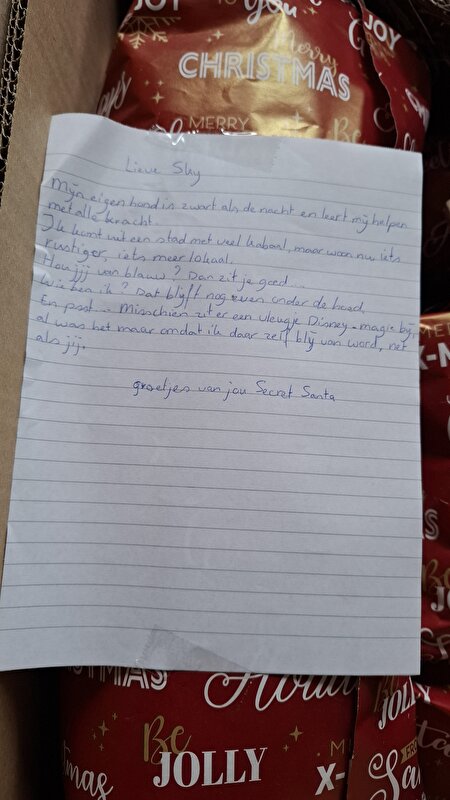 JOY
to you
Merry
CHRISTMAS
JOY
MERRY
Be
Lieve Sky
Mijn eigen hond is zwart als de nacht en leert mij helpen
met alle kracht.
Ik komt uit een stad met veel kabaal, maar woon nu iets
rustiger, iets meer lokaal.
Hou jij van blauw? Dan zit je goed...
Wie ben ik? Dat blijft nog even onder de hoed.
En psst... Misschien zit er een vleugje Disney-magie bij,
al was het maar omdat ik daar zelf blij van word, net
als jij.
groetjes van jou Secret Santa
X-M
Be
JO
Be
JOLLY
MAS
Be
JOLLY
JOLLY
mas
X-